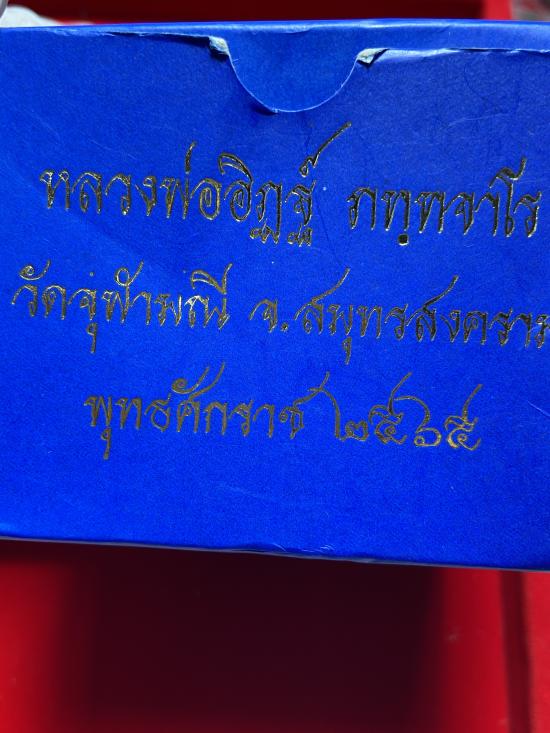 หลวงพ่ออิฏฐ์ ภทฺทจาโร
วัดจุฬามณี จ.สมุทรสงคราม
พุทธศักราช ๒๕๖๕